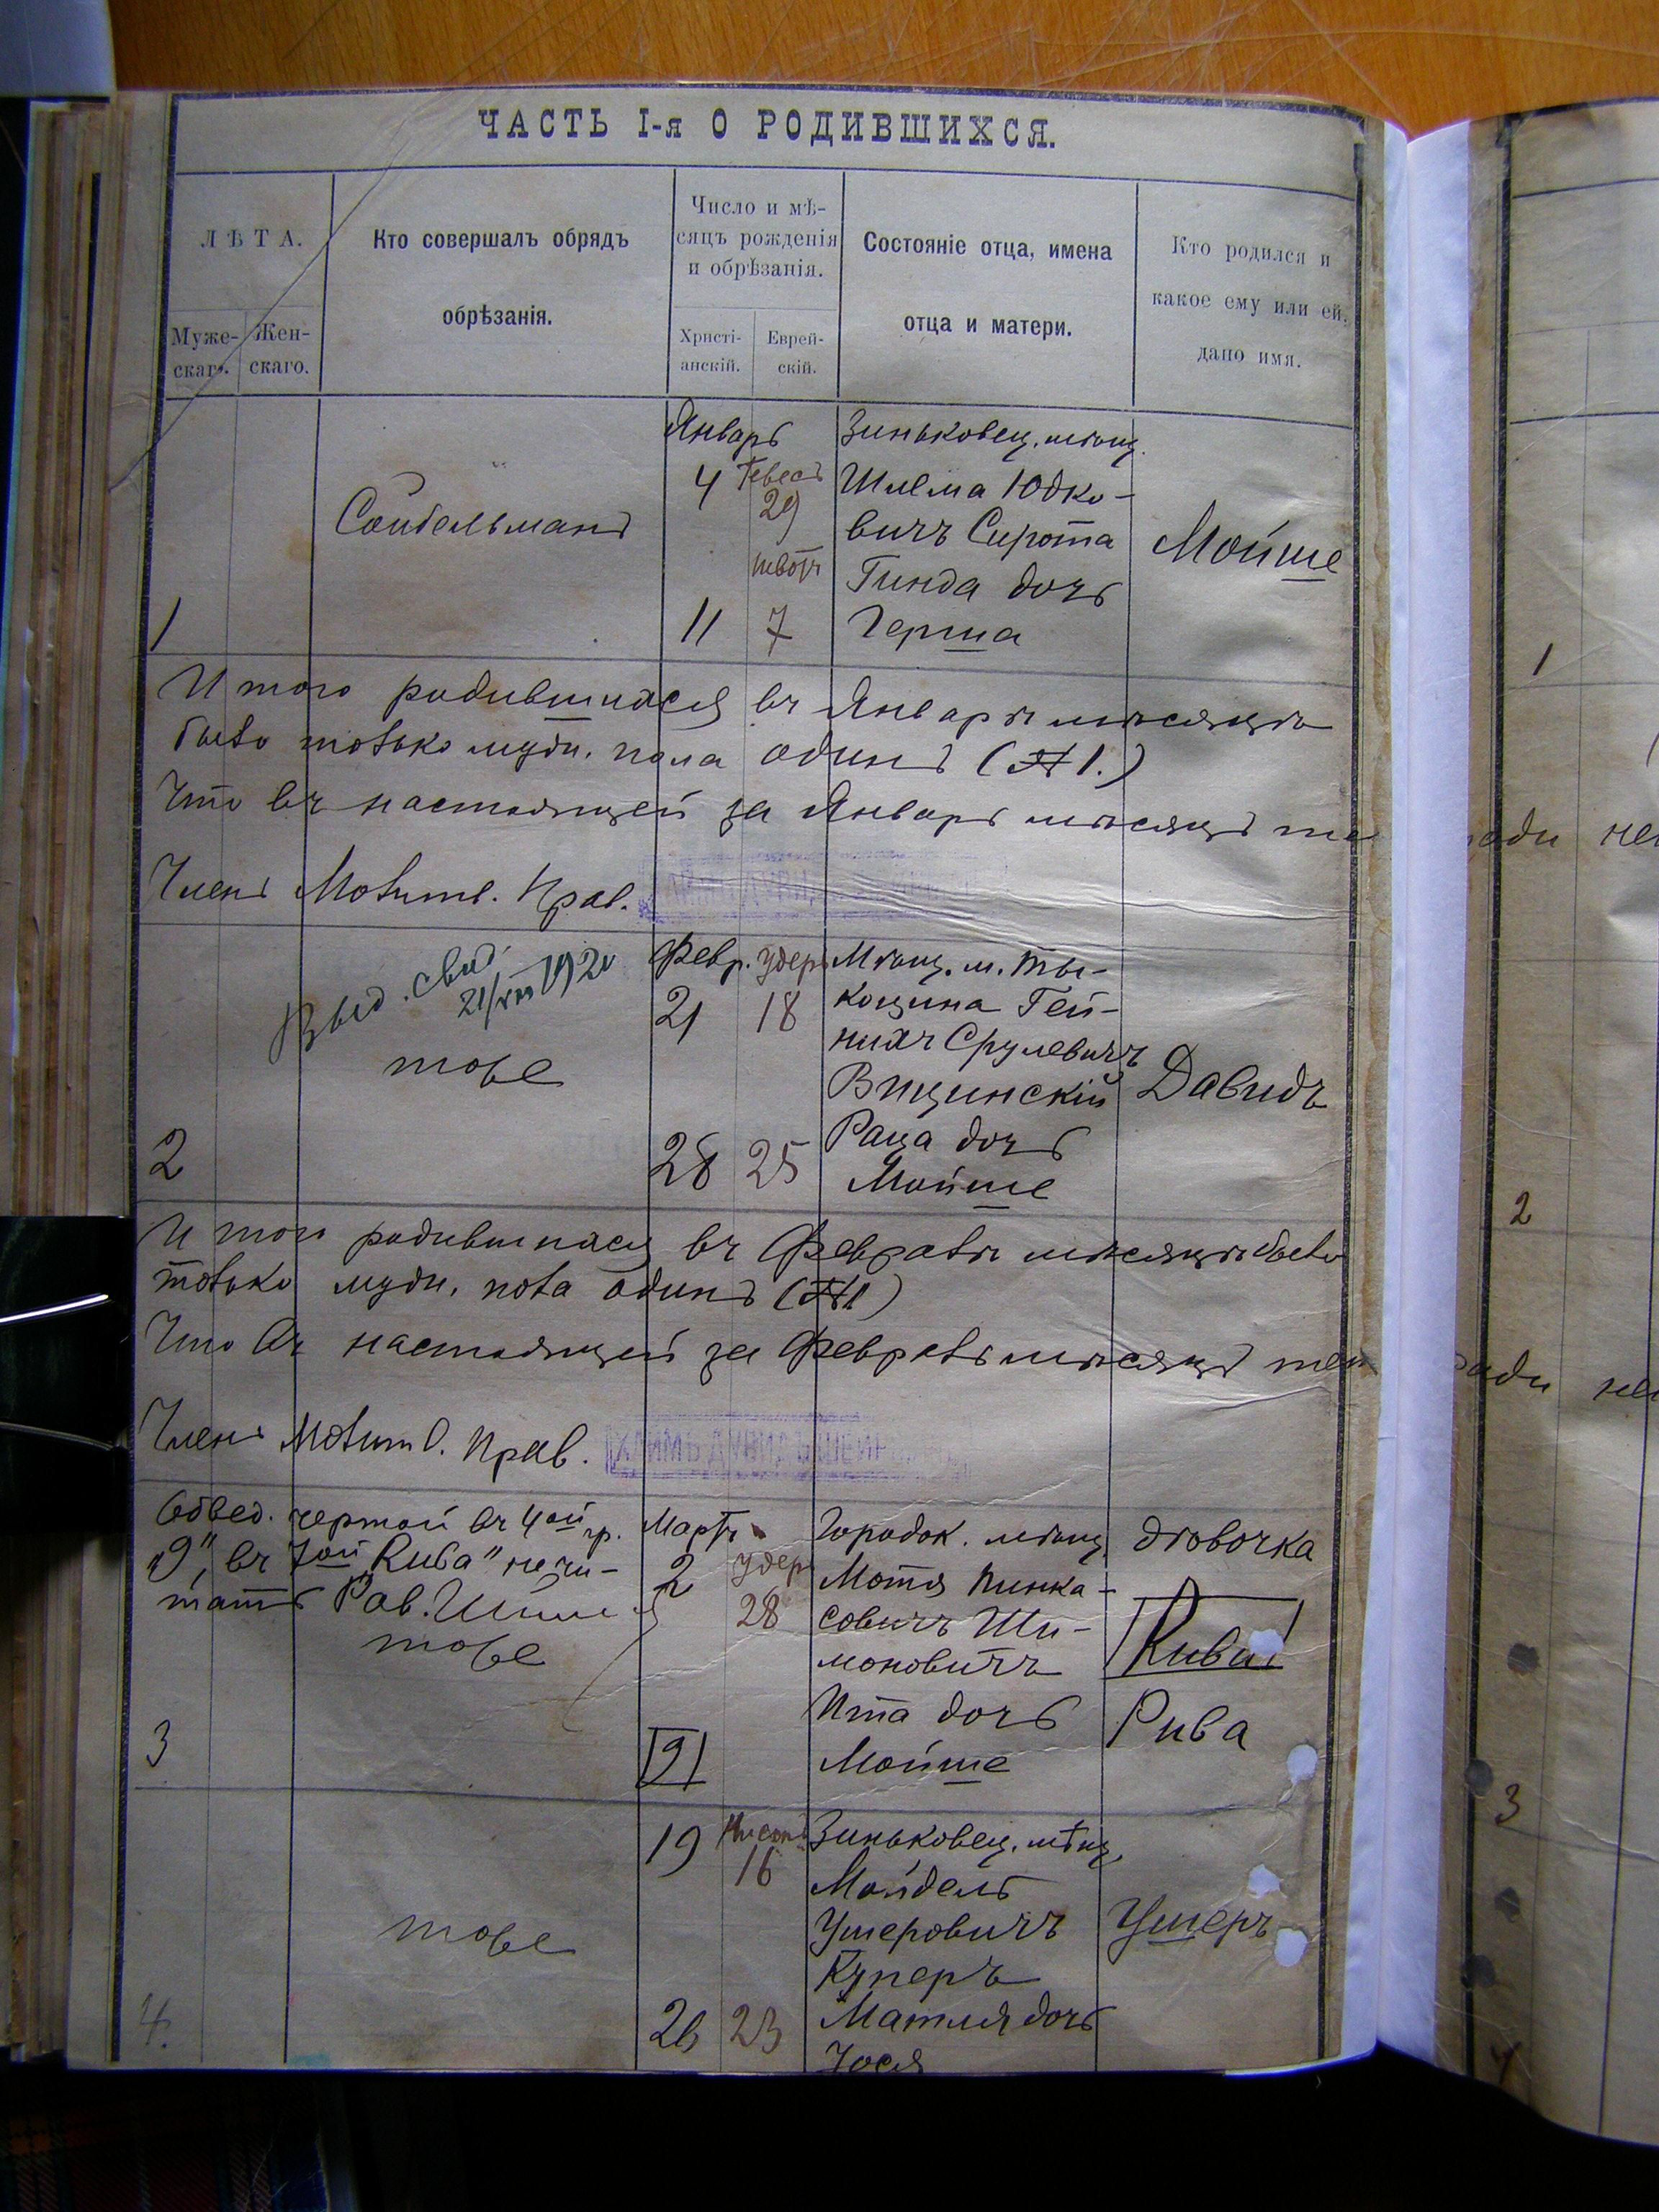 ЧАСТЬ I-я О РОДИВШИХСЯ.
ЛѢТА.
Муже-скаго.
Жен-скаго.
Кто совершалъ обрядъ
обрѣзанія.
Число и мѣ-
сяцъ рожденія
и обрѣзанія.
Христі-
анскій.
Еврей-
скій.
Состояніе отца, имена
отца и матери.
Кто родился и
какое ему или ей,
дано имя.
1
Январь
4
Тевесъ
29
11
7
Зиньковец. мѣщ.
Шлема Юдко-
вичъ Сирота
Гинда дочь
Герша
Мойше
Итого родившихся въ Январѣ мѣсяцѣ
было только муж. пола одинъ (№ 1.)
Что въ настоящей за Январь мѣсяцъ
Членъ Молитв. Прав.
2
Выд. свид.
21/VIII 1920
тоже
Февр.
21
Удеръ
18
28
25
Мѣщ. м. Ты-
коцина Гей-
нихъ Срулевичъ
Раца дочь
Мойше
Давидъ
Итого родившихся въ Февралѣ мѣсяцѣ было
только муж. пола одинъ (№1)
Что въ настоящей за Февраль мѣсяцъ
Членъ Молитв. Прав.
3
Обвед. чертой въ 4ой гр.
„9", въ 7ой „Кива" не чи-
тать Рав.
тоже
Мартъ
2
Удеръ
28
9
Городок. мѣщ.
Мотя Пинка-
совичъ Ши-
моновичъ
Ита дочь
Мойше
дѣвочка
Кива
Рива
4.
тоже
19
Нисонъ
16
26
23
Зиньковец. мѣщ.
Мойдель
Ушеровичъ
Куперъ
Матля дочь
Иося
Ушеръ
1
ради
2
ради
3